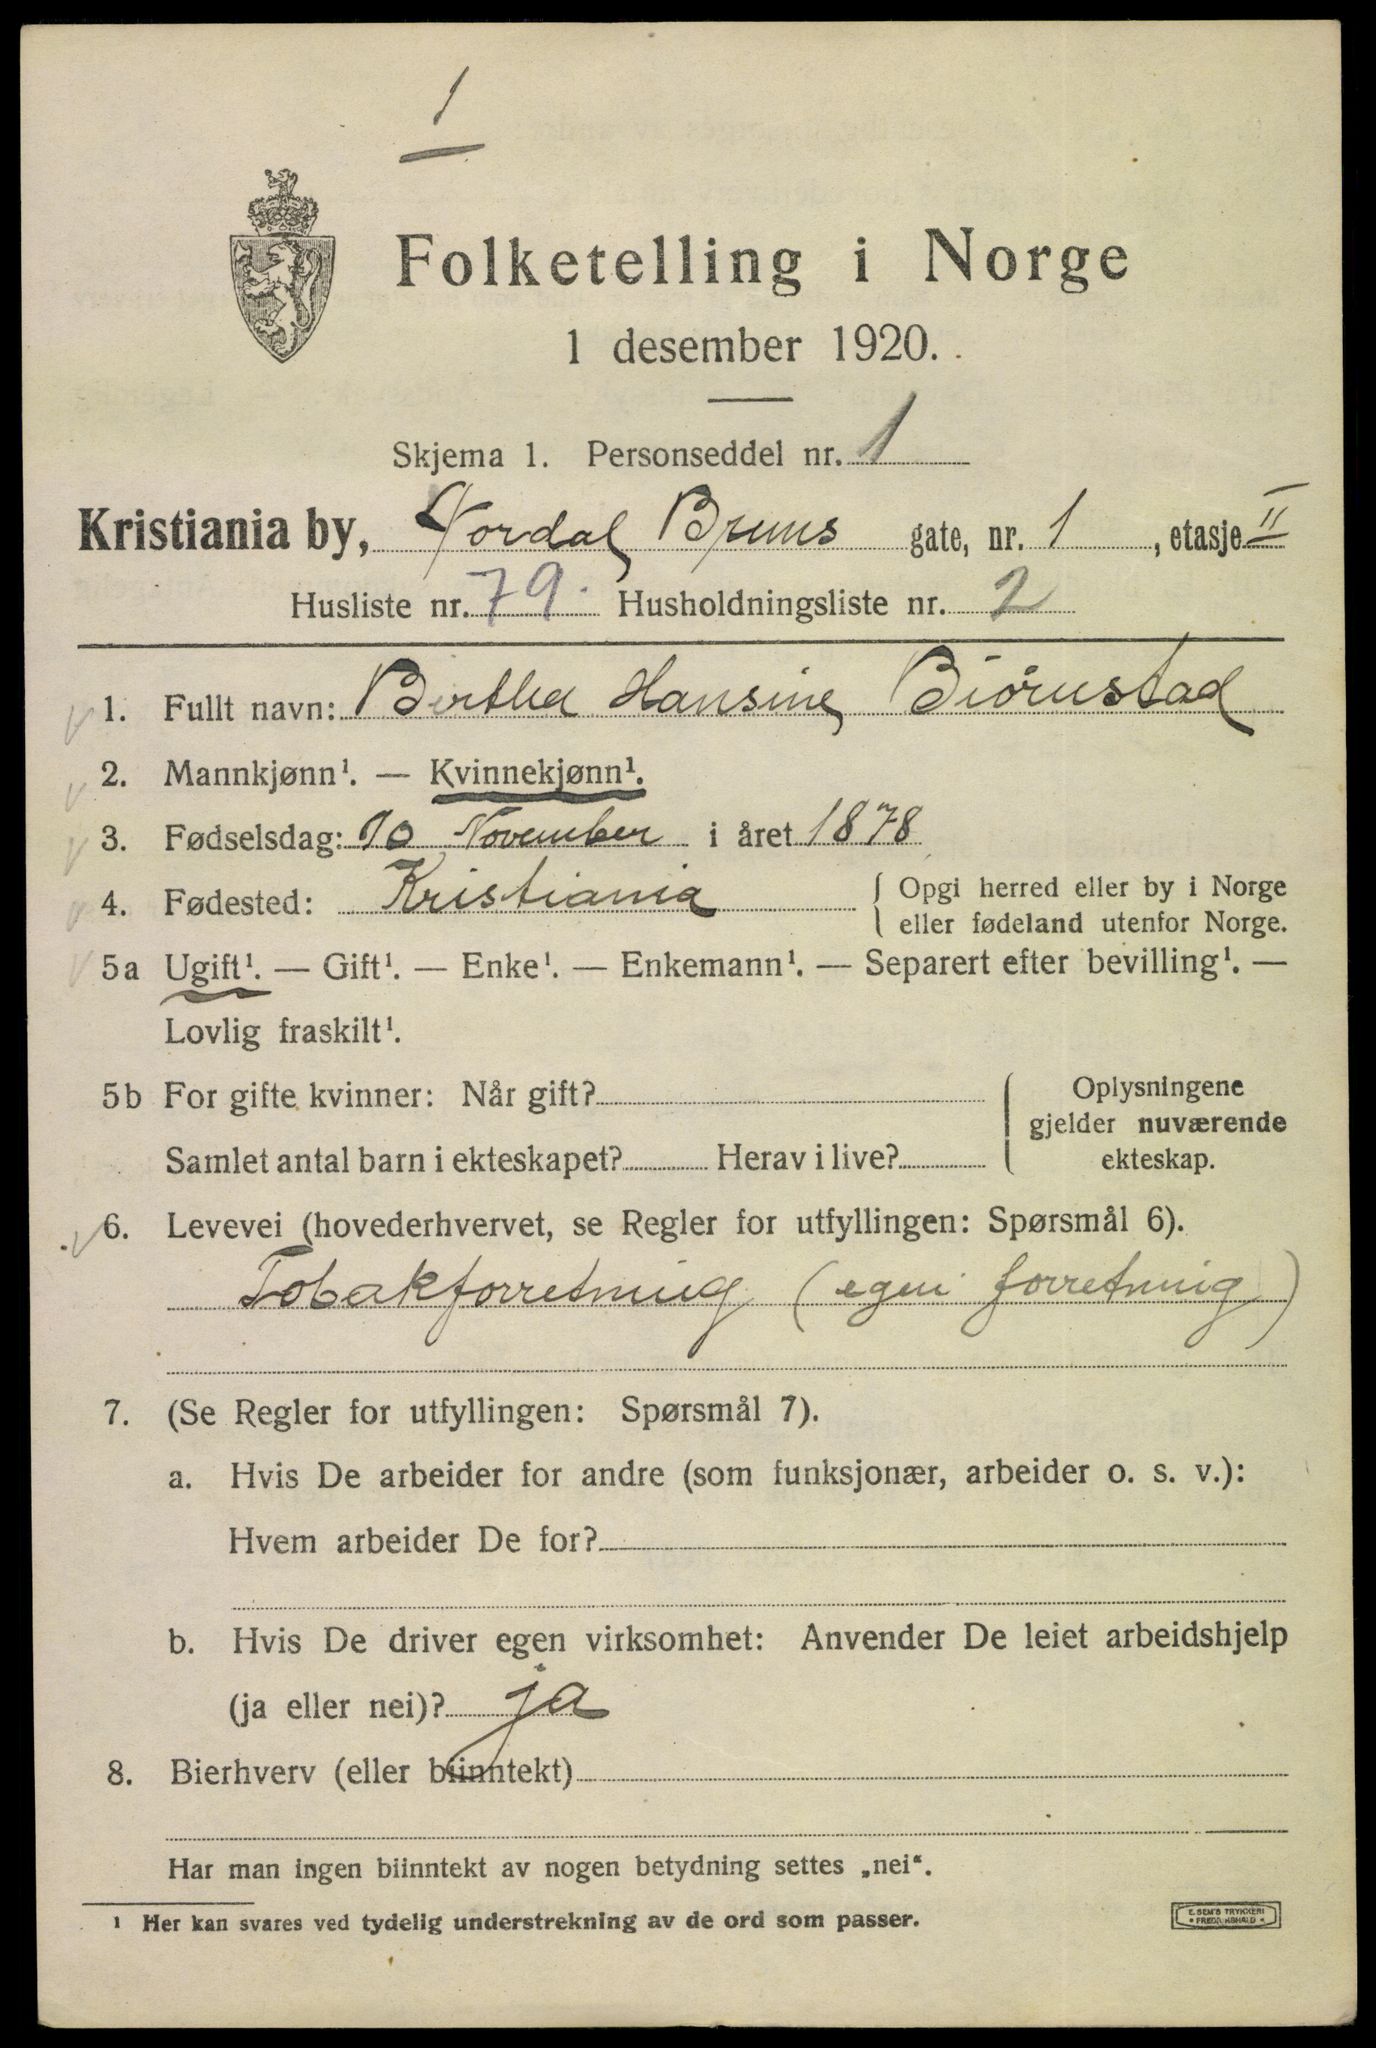 1
Folketelling i Norge
1 desember 1920.
Skjema 1. Personseddel nr. 1
Kristiania by, Nordal Bruns gate, nr. 1, etasje II
Husliste nr. 79. Husholdningsliste nr. 2
1. Fullt navn: Bertha Hansine Biørnstad
2. Mannkjønn¹. — Kvinnekjønn¹.
3. Fødselsdag: 10 November i året 1878
4. Fødested: Kristiania { Opgi herred eller by i Norge
eller fødeland utenfor Norge.
5a Ugift¹. — Gift¹. — Enke¹. — Enkemann¹. — Separert efter bevilling¹. —
Lovlig fraskilt¹.
5b For gifte kvinner: Når gift?
Samlet antal barn i ekteskapet? Herav i live?
Oplysningene
gjelder nuværende
ekteskap.
6. Levevei (hovederhvervet, se Regler for utfyllingen: Spørsmål 6).
Tobakforretning (egen forretning)
7. (Se Regler for utfyllingen: Spørsmål 7).
a. Hvis De arbeider for andre (som funksjonær, arbeider o. s. v.):
Hvem arbeider De for?
b. Hvis De driver egen virksomhet: Anvender De leiet arbeidshjelp
(ja eller nei)? ja
8. Bierhverv (eller biinntekt)
Har man ingen biinntekt av nogen betydning settes „nei“.
¹ Her kan svares ved tydelig understrekning av de ord som passer.
E. SEM'S TRYKKERI
• FREDRIKSHALD •